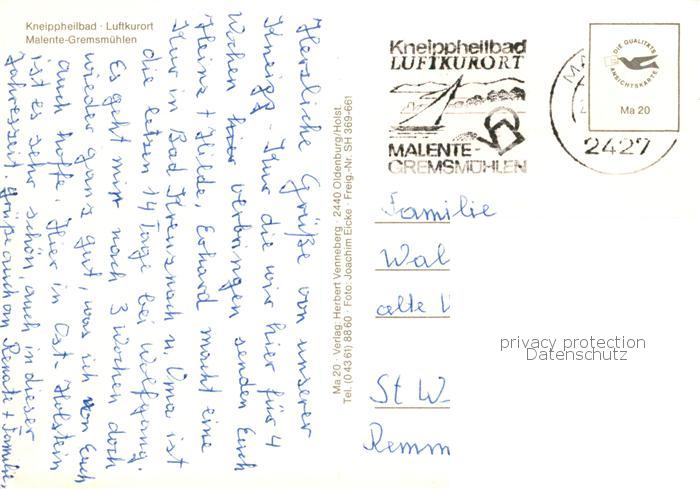 Kneippheilbad · Luftkurort
Malente-Gremsmühlen
Herzliche Grüße von unserer
Kneipp-Kur die wir hier für 4
Wochen hier verbringen senden Euch
Heinz + Hilde. Erhard macht eine
Kur in Bad Kreuznach u. Oma ist
die letzen 14 Tage bei Wolfgang.
Es geht mir nach 3 Wochen doch
wieder ganz gut, was ich von Euch
auch hoffe. Hier in Ost-Holstein
ist es sehr schön, auch in dieser
Jahreszeit. Grüße auch an Renate + Familie,
Ma 20 · Verlag: Herbert Venneberg · 2440 Oldenburg/Holst.
Tel. (0 43 61) 88 60 · Foto: Joachim Eicke · Freig.-Nr. SH 369-661
Kneippheilbad
LUFTKURORT
MALENTE-
GREMSMÜHLEN
MA
2427
DIE QUALITÄTS
ANSICHTSKARTE
Ma 20
Familie
Wal
alte
St W
Remm
privacy protection
Datenschutz